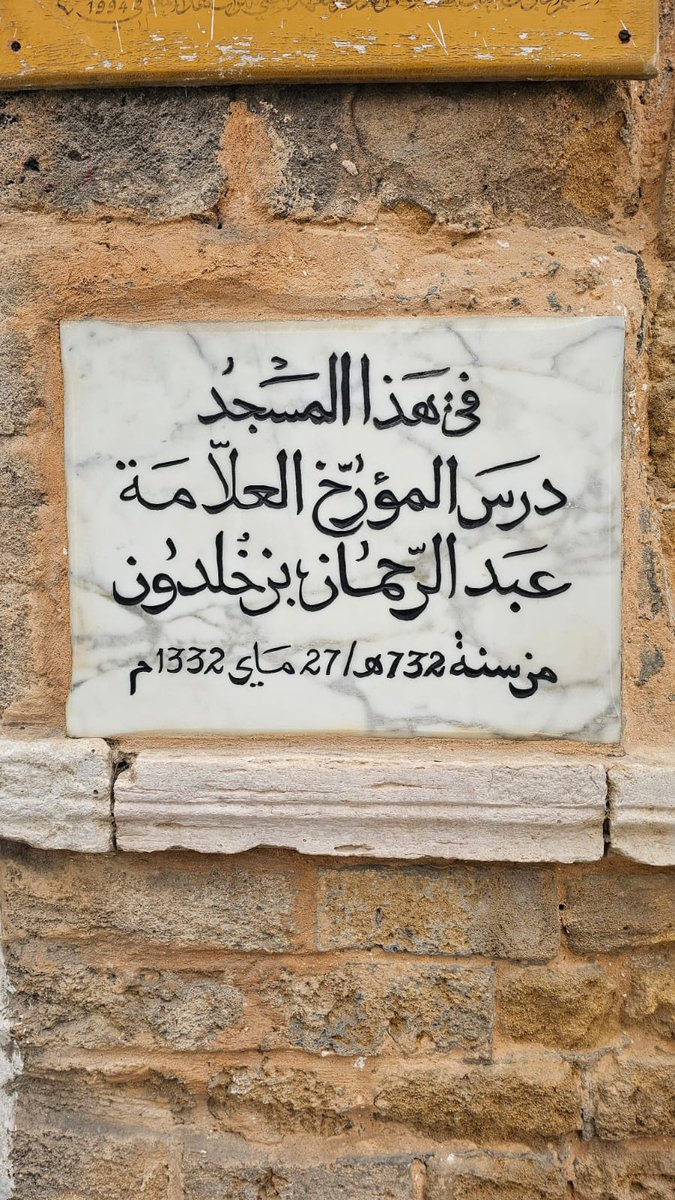 1994
في هذا المسجد
درس المؤرّخ العلاّمة
عبد الرّحمان بن خُلدون
من سنة 732هـ/27 ماي 1332م